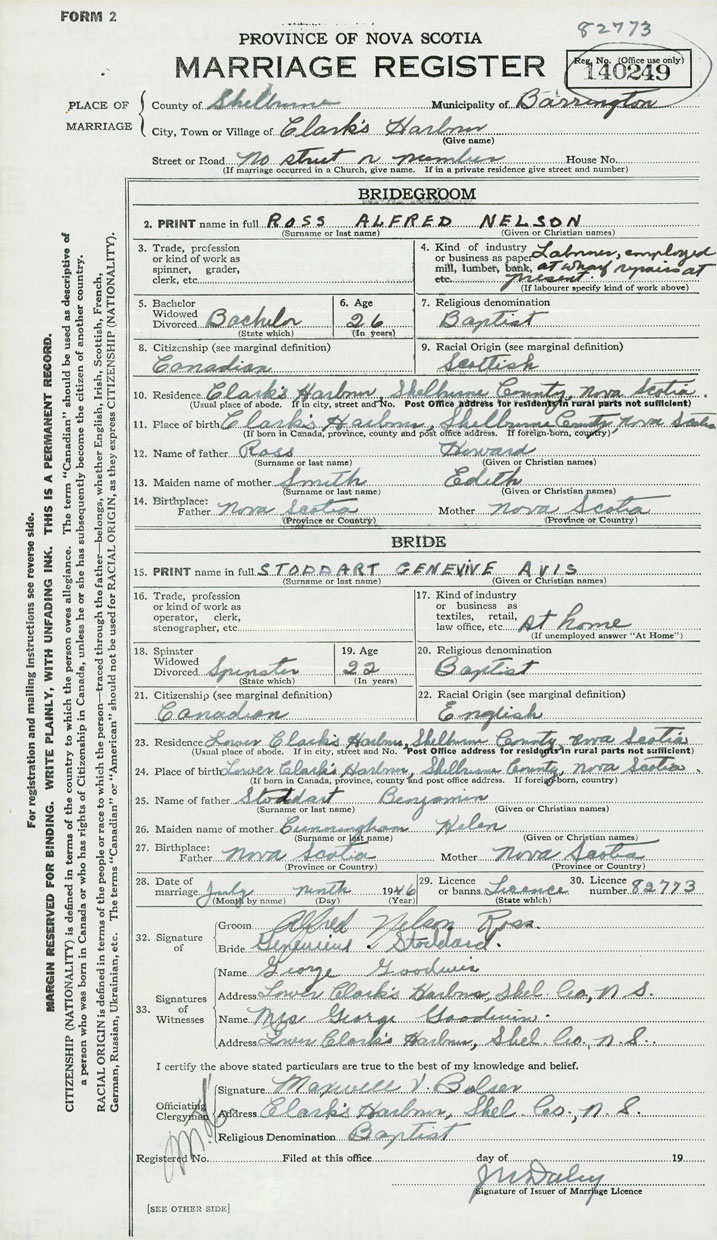 FORM 2
82773
PROVINCE OF NOVA SCOTIA
MARRIAGE REGISTER
Reg. No. (Office use only)
140249
PLACE OF MARRIAGE
County of Shelburne Municipality of Barrington
City, Town or Village of Clark's Harbour
(Give name)
Street or Road No street or number House No.
(If marriage occurred in a Church, give name. If in a private residence give street and number)
BRIDEGROOM
2. PRINT name in full ROSS ALFRED NELSON
(Surname or last name) (Given or Christian names)
3. Trade, profession or kind of work as spinner, grader, clerk, etc.
4. Kind of industry or business as paper mill, lumber, bank, etc. Labourer, employed at wharf repairs at present.
(If labourer specify kind of work above)
5. Bachelor Widowed Divorced Bachelor
(State which)
6. Age 26
(In years)
7. Religious denomination
Baptist
8. Citizenship (see marginal definition)
Canadian
9. Racial Origin (see marginal definition)
Scottish
10. Residence Clark's Harbour, Shelburne County, Nova Scotia.
(Usual place of abode. If in city, street and No. Post Office address for residents in rural parts not sufficient)
11. Place of birth Clark's Harbour, Shelburne County Nova Scotia
(If born in Canada, province, county and post office address. If foreign-born, country)
12. Name of father Ross Howard
(Surname or last name) (Given or Christian names)
13. Maiden name of mother Smith Edith
(Surname or last name) (Given or Christian names)
14. Birthplace: Father Nova Scotia Mother Nova Scotia
(Province or Country) (Province or Country)
BRIDE
15. PRINT name in full STODDART GENEVIVE AVIS
(Surname or last name) (Given or Christian names)
16. Trade, profession or kind of work as operator, clerk, stenographer, etc.
17. Kind of industry or business as textiles, retail, law office, etc. At home
(If unemployed answer "At Home")
18. Spinster Widowed Divorced Spinster
(State which)
19. Age 22
(In years)
20. Religious denomination
Baptist
21. Citizenship (see marginal definition)
Canadian
22. Racial Origin (see marginal definition)
English
23. Residence Lower Clark's Harbour, Shelburne County, Nova Scotia
(Usual place of abode. If in city, street and No. Post Office address for residents in rural parts not sufficient)
24. Place of birth Lower Clark's Harbour, Shelburne County, Nova Scotia.
(If born in Canada, province, county and post office address. If foreign-born, country)
25. Name of father Stoddart Benjamin
(Surname or last name) (Given or Christian names)
26. Maiden name of mother Cunningham Helen
(Surname or last name) (Given or Christian names)
27. Birthplace: Father Nova Scotia Mother Nova Scotia
(Province or Country) (Province or Country)
28. Date of marriage July ninth 1946
(Month by name) (Day) (Year)
29. Licence or banns Licence
(State which)
30. Licence number 82773
32. Signature of
Groom Alfred Nelson Ross.
Bride Stoddard.
33. Signatures of Witnesses
Name George Goodwin
Address Lower Clark's Harbour, Shel. Co., N.S.
Name Mrs George Goodwin.
Address Lower Clark's Harbour, Shel. Co., N.S.
I certify the above stated particulars are true to the best of my knowledge and belief.
Officiating Clergyman
Signature Maxwell V. Bolser
Address Clark's Harbour, Shel. Co., N.S.
Religious Denomination Baptist
Registered No. Filed at this office day of 19
Daley
Signature of Issuer of Marriage Licence
[SEE OTHER SIDE]
For registration and mailing instructions see reverse side.
MARGIN RESERVED FOR BINDING. WRITE PLAINLY, WITH UNFADING INK. THIS IS A PERMANENT RECORD.
CITIZENSHIP (NATIONALITY) is defined in terms of the country to which the person owes allegiance. The term "Canadian" should be used as descriptive of
a person who was born in Canada or who has rights of Citizenship in Canada, unless he or she has subsequently become the citizen of another country.
RACIAL ORIGIN is defined in terms of the people or race to which the person—traced through the father—belongs, whether English, Irish, Scottish, French,
German, Russian, Ukrainian, etc. The terms "Canadian" or "American" should not be used for RACIAL ORIGIN, as they express CITIZENSHIP (NATIONALITY).